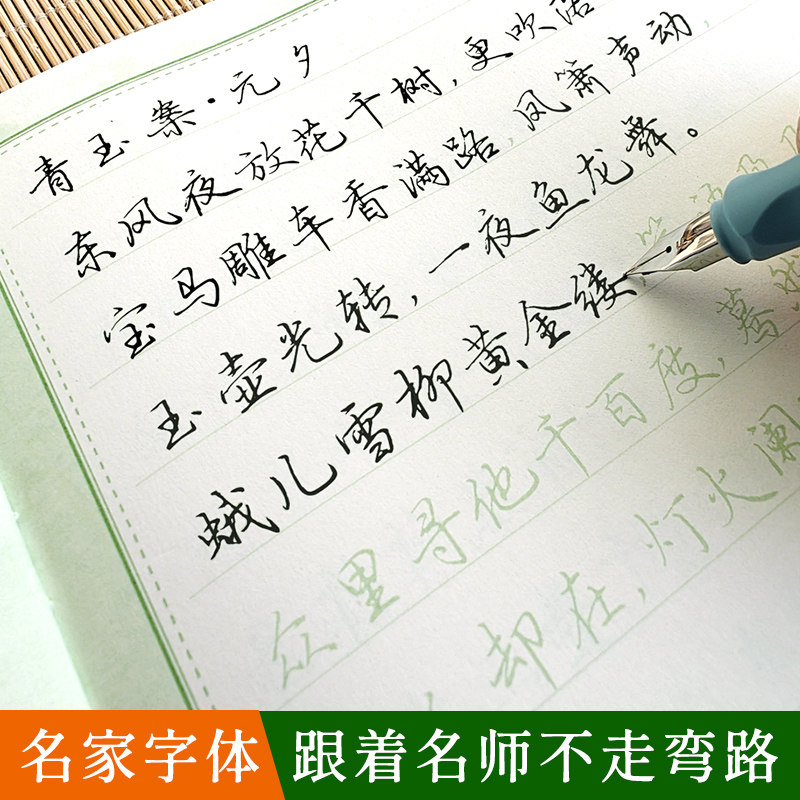 青玉案·元夕
东风夜放花千树,更吹落
宝马雕车香满路,凤箫声动,
玉壶光转,一夜鱼龙舞。
蛾儿雪柳黄金缕,笑语
众里寻他千百度,蓦然
却在,灯火阑
名家字体 跟着名师不走弯路